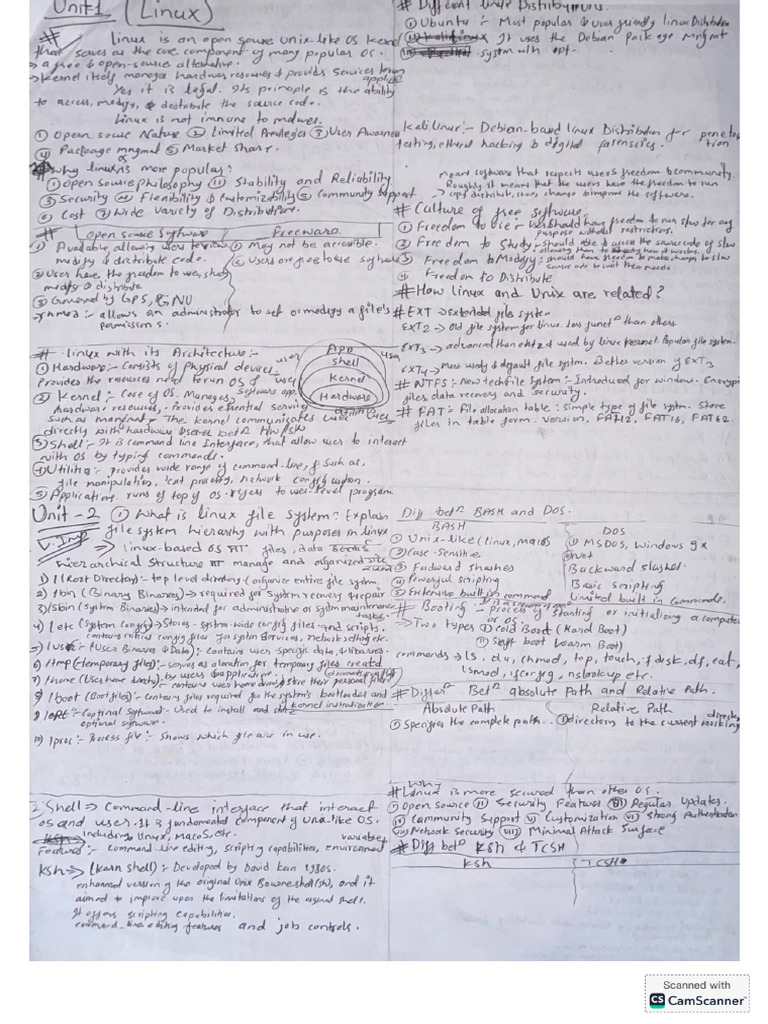 Unit-1 (Linux)
# Linux is an open source Unix-like OS Kernel
that serves as the core component of many popular OS.
→ a free & open-source alternative.
→ Kernel itself manages hardware resources & provides services
Yes it is legal. Its principle is the ability
to access, modify, & distribute the source code.
Linux is not immune to
① Open source Nature ② Limited Privileges ③ User Awareness
④ Package mngmnt ⑤ Market Share.
# Why linux is more popular?
① Open source Philosophy ② Stability and Reliability
③ Security ④ Flexibility & Customizability ⑤ Community Support
⑥ Cost ⑦ Wide Variety of Distribution.
# Open source Software
Freeware
① Available, allowing user to view
modify & distribute code.
② Users have the freedom to use, study
modify & distribute
③ Governed by GPS, GNU
① May not be accessible.
② Users are free to use software
chmod :- allows an administrator to set or modify a file's
permissions.
# Linux with its Architecture:-
① Hardware:- Consists of Physical device
Provides the resources need for run OS &
② Kernel: Core of OS. Manages
hardware resources, Provides essential services
such as The Kernel communicates
directly with hardware
③ Shell:- It is command line Interface, that allow user to interact
with OS by typing commands.
④ Utilities:- provides wide range of command-line, such as,
file manipulation, text processing, network configuration.
⑤ Application: runs of top of OS. refers to user-level program
App
Shell
Kernel
Hardware
user
Unit-2 ① What is linux file system? Explain
file system hierarchy with purposes in linux
V.Imp
⇒ Linux-based OS files, data
Hierarchical Structure manage and organized
1) / (Root Director):- top level directory (organize entire file system.
2) /bin (Binary Binaries) → required for system recovery & repair
3) /sbin (System Binaries) → intended for administrative or system maintenance
tasks.
4) /etc (System Config) → Stores - system-wide config files and scripts.
contains critical config files for system services, network setting etc.
5) /usr (User Binaries & Data): Contains user specific data, & libraries.
6) /tmp (Temporary files): - serves as a location for temporary files created
by users & application.
7) /home (User home direct):- contains user home directories store their personal files
8) /boot (Boot files):- contains files required for the system's bootloader and
kernel initialization.
9) /opt:- (optional software) - Used to install and store
optional software.
10) /proc:- Process file:- Shows which file are in use.
2. Shell ⇒ Command-line interface that interact
OS and user. It is fundamental component of Unix-like OS.
including Linux, MacOS, etc.
Features:- Command-line editing, scripting capabilities, environment
variable,
Ksh ⇒ (Korn Shell):- Developed by David Korn 1980s.
enhanced version of the original Unix Bourne shell (sh), and it
aimed to improve upon the limitations of the original shell.
It offers scripting capabilities,
command-line editing features and job controls.
# Different Linux Distributions.
① Ubuntu :- Most popular & user friendly linux Distribution
It uses the Debian Package mngmnt
system with apt.
Kali Linux:- Debian-based linux Distribution for penetra
tion
testing, ethical hacking & digital forensics.
meant software that respects user's freedom & community.
Roughly it means that the users have the freedom to run
copy distribute, change & improve the software.
# Culture of free Software.
① Freedom to Use :- Users should have freedom to run s/w for any
purpose without restrictions.
② Freedom to Study :- should able to access the source code of s/w
allowing them to how it works.
③ Freedom to Modify: should have freedom to make change to s/w
source code to suit their needs
④ Freedom to Distribute
# How linux and Unix are related?
# EXT → extended file system
EXT2 → Old file system for linux. Less funct than others
EXT3 → advanced than ext2 & used by linux kernel. Popular file system.
EXT4 → Most used & default file system. Better version of EXT3
# NTFS:- New tech File System :- Introduced for window.
files, data recovery and security.
# FAT:- File allocation table : simple type of file system. Store
files in table form. Version, FAT12, FAT16, FAT32.
Diff betn BASH and DOS.
BASH
DOS
① Unix-like (Linux, MacOS)
② Case-Sensitive
③ Forward slashes
④ Powerful scripting
⑤ Extensive built in command
① MSDOS, Windows 9x
② Not
Backward slashes.
Basic scripting
Limited built in commands.
# Booting :- process of starting or initializing a computer
or OS.
⇒ Two types ① Cold Boot (Hard Boot)
② Soft boot (warm Boot)
commands → ls, du, chmod, top, touch, fdisk, df, cat,
lsmod, ifconfig, nslookup etc.
# Different Betn absolute Path and Relative Path.
Absolute Path
Relative Path
① Specifies the complete path..
① directory to the current working
directory
Why
# Linux is more secured than other OS.
① Open source ② Security Features ③ Regular Updates.
④ Community Support ⑤ Customization ⑥ Strong Authentication
⑦ Network Security ⑧ Minimal Attack Surface
# Diff betn Ksh & TCSH
Ksh
TCSH
Scanned with
CS CamScanner